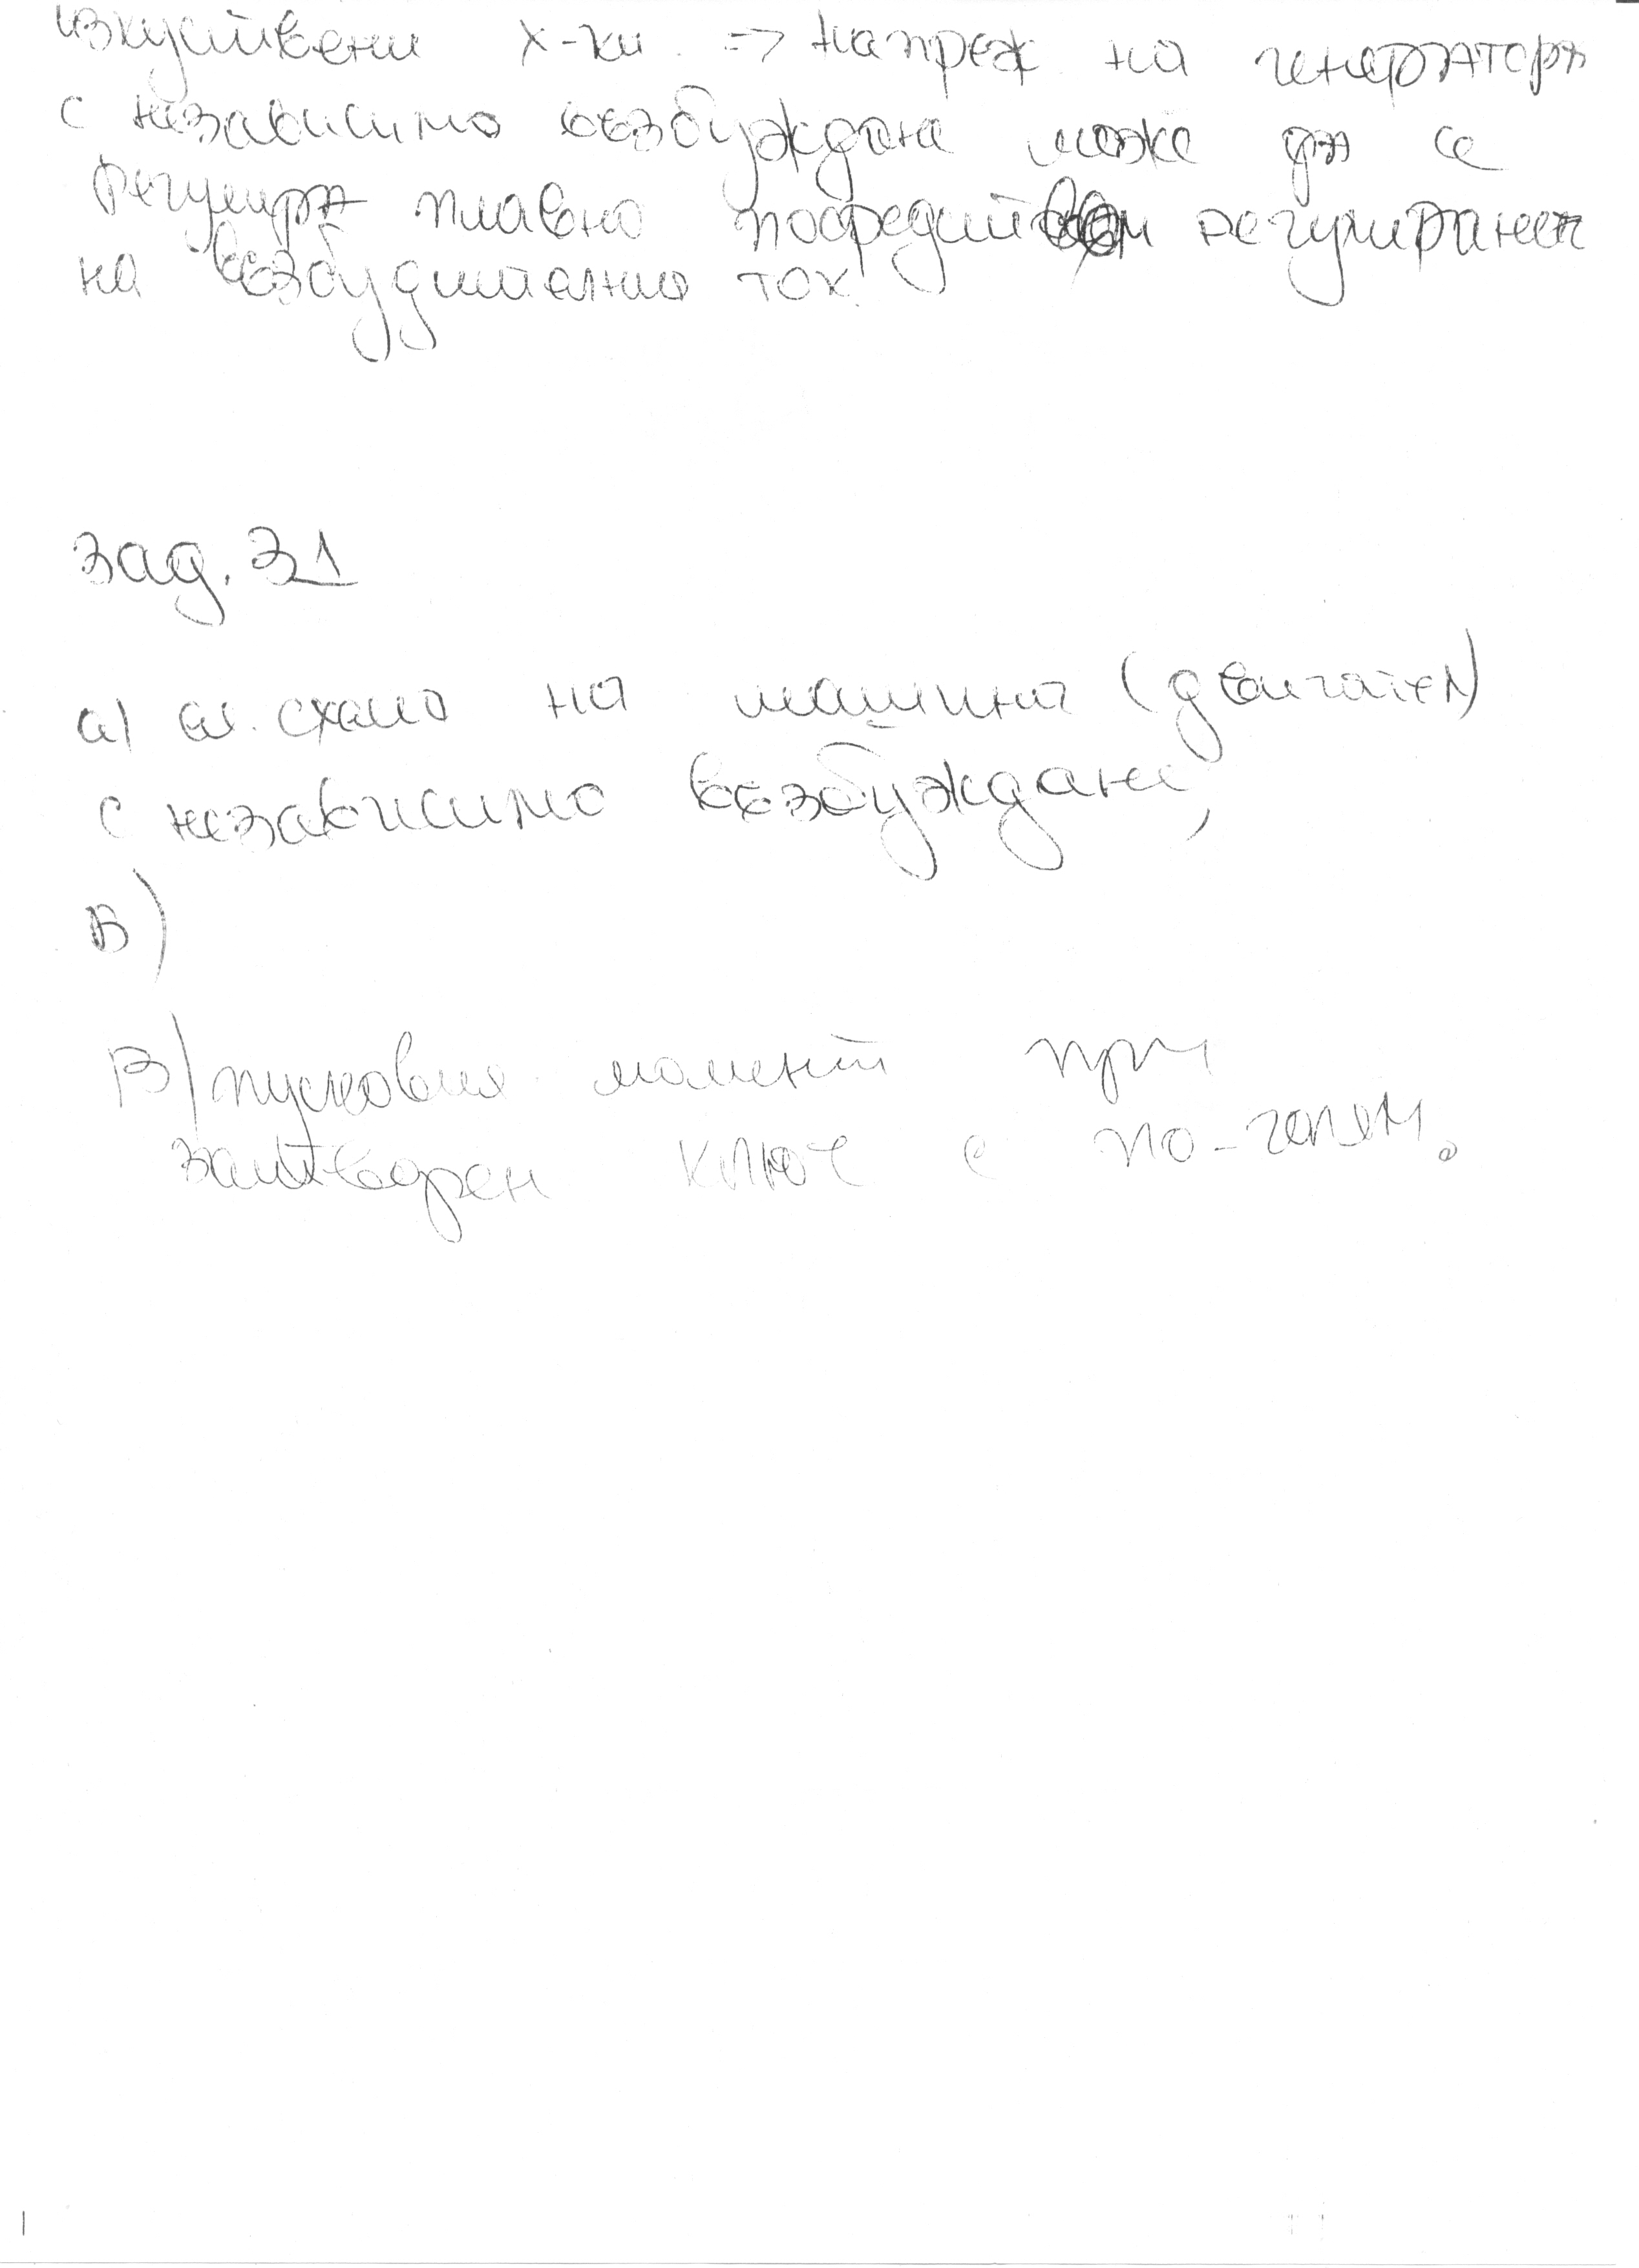 изкуствени х-ки => напреж на генератора
с независимо възбуждане може да се
регулира плавно посредством регулиране
на възбудителния ток.
зад. 31
а) ел. схема на машина (двигател)
с независимо възбуждане,
В)
В) пусковия момент при
затворен ключ е по-голям.